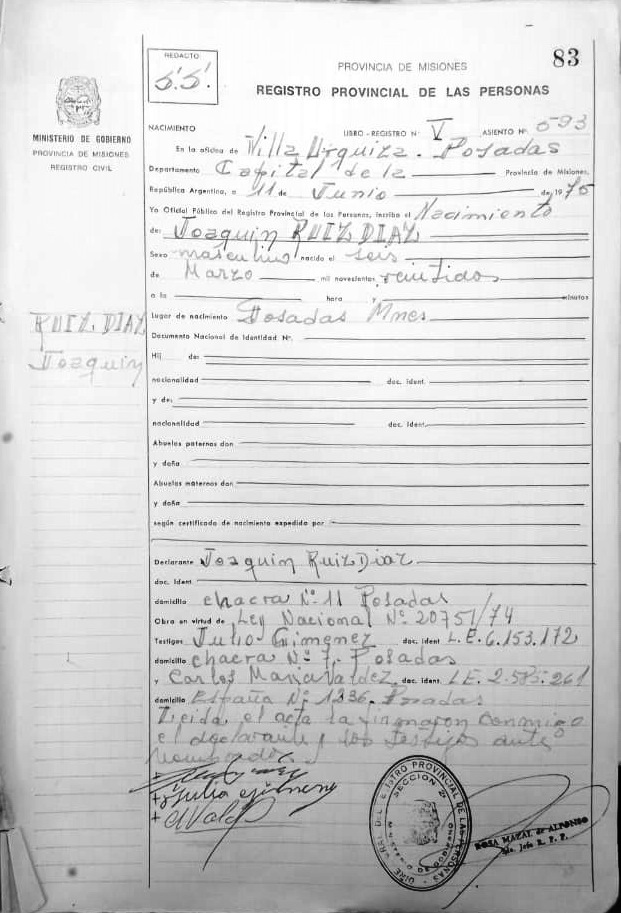 REDACTO
S.S.
83
PROVINCIA DE MISIONES
REGISTRO PROVINCIAL DE LAS PERSONAS
MINISTERIO DE GOBIERNO
PROVINCIA DE MISIONES
REGISTRO CIVIL
NACIMIENTO LIBRO - REGISTRO N° V ASIENTO N° 593
En la oficina de Villa Urquiza. Posadas
Departamento Capital de la Provincia de Misiones,
República Argentina, a 11 de Junio de 1975
Yo Oficial Público del Registro Provincial de las Personas, inscribo el Nacimiento
de: Joaquin RUIZ DIAZ
Sexo masculino nacido el seis
de Marzo mil novecientos veintidos
a la hora y minutos
RUIZ. DIAZ
Joaquin
lugar de nacimiento Posadas Mnes
Documento Nacional de Identidad N°.
Hij de:
nacionalidad doc. ident.
y de:
nacionalidad doc. ident.
Abuelos paternos don
y doña
Abuelos maternos don
y doña
según certificado de nacimiento expedido por
Declarante Joaquin Ruiz Diaz
doc. ident.
domicilio chacra N° 11 Posadas
Obra en virtud de Ley Nacional N° 20751/74
Testigos Julio Gimenez doc. ident L.E. 6.153.172
domicilio chacra N° 7. Posadas
y Carlos Maria Valdez doc. ident. LE. 2.585.261
domicilio España N° 1336. Posadas
Leida, el acta la firmaron conmigo
el declarante y los testigos ante
nombrados
+ Julio Gimenez
REGISTRO PROVINCIAL DE LAS PERSONAS
SECCION
ROSA MAZAL de ALFONSO
Jefe R. P. P.